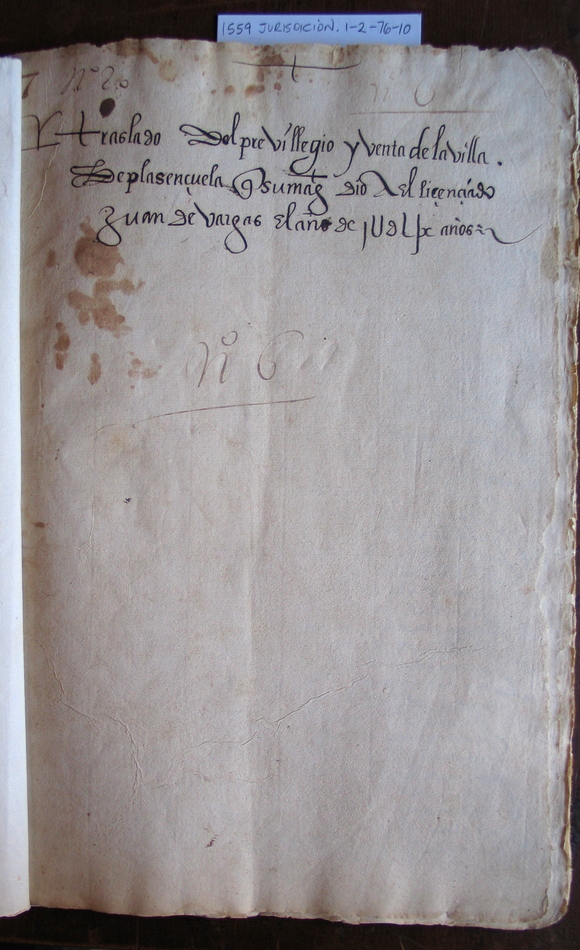 1559 JURISDICIÓN. 1-2-76-10
Nº 2º
traslado Del previllegio y venta de la villa.
De plasençuela q su mag dio Al liçençiado
Juan de Vargas El año de años
nº 6